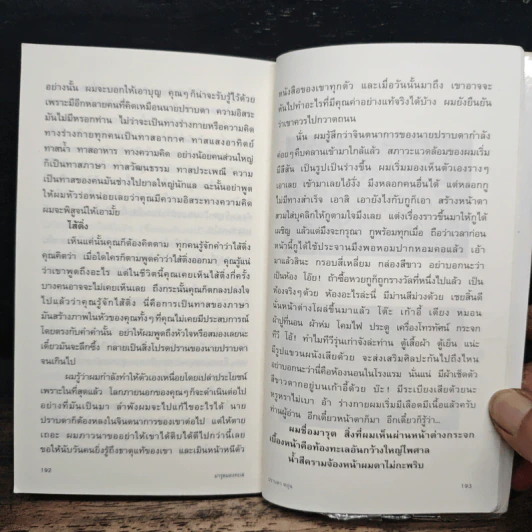 อย่างนั้น ผมจะบอกให้เอาบุญ คุณๆ ก็น่าจะรับรู้ไว้ด้วย
เพราะมีอีกหลายคนที่คิดเหมือนนายปราบดา ความอิสระ
มันไม่มีหรอกท่าน ไม่ว่าจะเป็นทางร่างกายหรือความคิด
ทางร่างกายทุกคนเป็นทาสอากาศ ทาสแสงอาทิตย์
ทาสน้ำ ทาสอาหาร ทางความคิด อย่างน้อยคนส่วนใหญ่
ก็เป็นทาสภาษา ทาสวัฒนธรรม ทาสประเพณี ความ
เป็นทาสของคนมันช่างไปยาลใหญ่นักแล ฉะนั้นอย่าพูด
ให้ผมหัวร่อหน่อยเลยว่าคุณมีความอิสระทางความคิด
ผมจะพิสูจน์ให้เอามั้ย
ไส้ติ่ง
เห็นแค่นั้นคุณก็ต้องคิดตาม ทุกคนรู้จักคำว่าไส้ติ่ง
คุณคิดว่า เมื่อใดใครก็ตามพูดคำว่าไส้ติ่งออกมา คุณรู้แน่
ว่าเขาพูดถึงอะไร แต่ในชีวิตนี้คุณเคยเห็นไส้ติ่งกี่ครั้ง
บางคนอาจจะไม่เคยเห็นเลย ถึงกระนั้นคุณก็ตกลงปลงใจ
ไปแล้วว่าคุณรู้จักไส้ติ่ง นี่คือการเป็นทาสของภาษา
มันสร้างภาพในหัวของคุณทั้งๆ ที่คุณไม่เคยมีประสบการณ์
โดยตรงกับคำคำนั้น อย่าให้ผมพูดถึงหัวใจหรือสมองเลยนะ
เดี๋ยวมันจะลึกซึ้ง กลายเป็นสิ่งโปรดปรานของนายปราบดา
จนเกินไป
ผมรู้ว่าผมกำลังทำให้ตัวเองเหนื่อยโดยเปล่าประโยชน์
เพราะในที่สุดแล้ว โลกภายนอกของคุณๆ ก็จะดำเนินต่อไป
อย่างที่มันเป็นมา ลำพังผมจะไปแก้ไขอะไรได้ นาย
ปราบดาก็ต้องหลงในจินตนาการของเขาต่อไป แต่ให้ตาย
เถอะ ผมภาวนาขออย่าให้เขาได้ดิบได้ดีไปกว่านี้เลย
ขอให้นับวันคนยิ่งรู้ถึงธาตุแท้ของเขา และเป็นหน้าหนีตัว
192
มารุตมองทะเล
หนังสือของเขาทุกตัว และเมื่อวันนั้นมาถึง เขาอาจจะ
หันไปทำอะไรที่มีคุณค่าอย่างแท้จริงได้บ้าง ผมยังยืนยัน
ว่าเขาควรไปกวาดถนน
นั่น ผมรู้สึกว่าจินตนาการของนายปราบดากำลัง
ค่อยๆ คืบคลานเข้ามาใกล้แล้ว สภาวะแวดล้อมของผมเริ่ม
มีสีสัน เป็นรูปเป็นร่างขึ้น ผมเริ่มมองเห็นตัวเองรางๆ
เอาเลย เข้ามาเลยไอ้งั่ง มึงหลอกคนอื่นได้ แต่หลอกกู
ไม่มีทางสำเร็จ เอาสิ เอายังไงกับกูก็เอา สร้างหน้าตา
สวมใส่บุคลิกให้กูตามใจมึงเลย แต่งเรื่องราวขึ้นมาให้กูได้
เผชิญ แล้วแต่มึงจะกรุณา กูพร้อมทุกเมื่อ ถือว่าเวลาก่อน
หน้านี้กูได้ใช้ประจานมึงพอหอมปากหอมคอแล้ว เอ้า
มาแล้วสินะ กรอบสี่เหลี่ยม กล่องสีขาว อย่าบอกนะว่า
เป็นห้อง โอ้ย! ถ้าซื้อหวยกูก็ถูกรางวัลที่หนึ่งไปแล้ว เป็น
ห้องจริงๆ ด้วย ห้องอะไรล่ะนี่ มีม่านสีม่วงด้วย เชยสิ้นดี
นั่นหน้าต่างโผล่ขึ้นมาแล้ว โต๊ะ เก้าอี้ เตียง หมอน
ผ้าปูที่นอน ผ้าห่ม โคมไฟ ประตู เครื่องโทรทัศน์ กระจก
ทีวี โอ้! ทำไมทีวีรุ่นเก่าจังล่ะท่าน ตู้เสื้อผ้า ตู้เย็น แน่ะ
มีรูปแขวนผนังเสียด้วย จะส่งเสริมศิลปะกันไปถึงไหน
อย่าบอกนะว่านี่คือห้องนอนในโรงแรม นั่นแน่ มีผ้าเช็ดตัว
สีขาวตากอยู่บนเก้าอี้ด้วย บ๊ะ! มีระเบียงเสียด้วยนะ
หรูหราไม่เบา อ้า ร่างกายผมเริ่มมีเลือดมีเนื้อแล้วครับ
ท่านผู้อ่าน อีกเดี๋ยวหน้าตาก็มา อีกเดี๋ยวก็รู้ว่า...
ผมชื่อมารุต สิ่งที่ผมเห็นผ่านหน้าต่างกระจก
เบื้องหน้าคือท้องทะเลอันกว้างใหญ่ไพศาล
น้ำสีครามจ้องหน้าผมตาไม่กะพริบ
ปราบดา หยุ่น
193